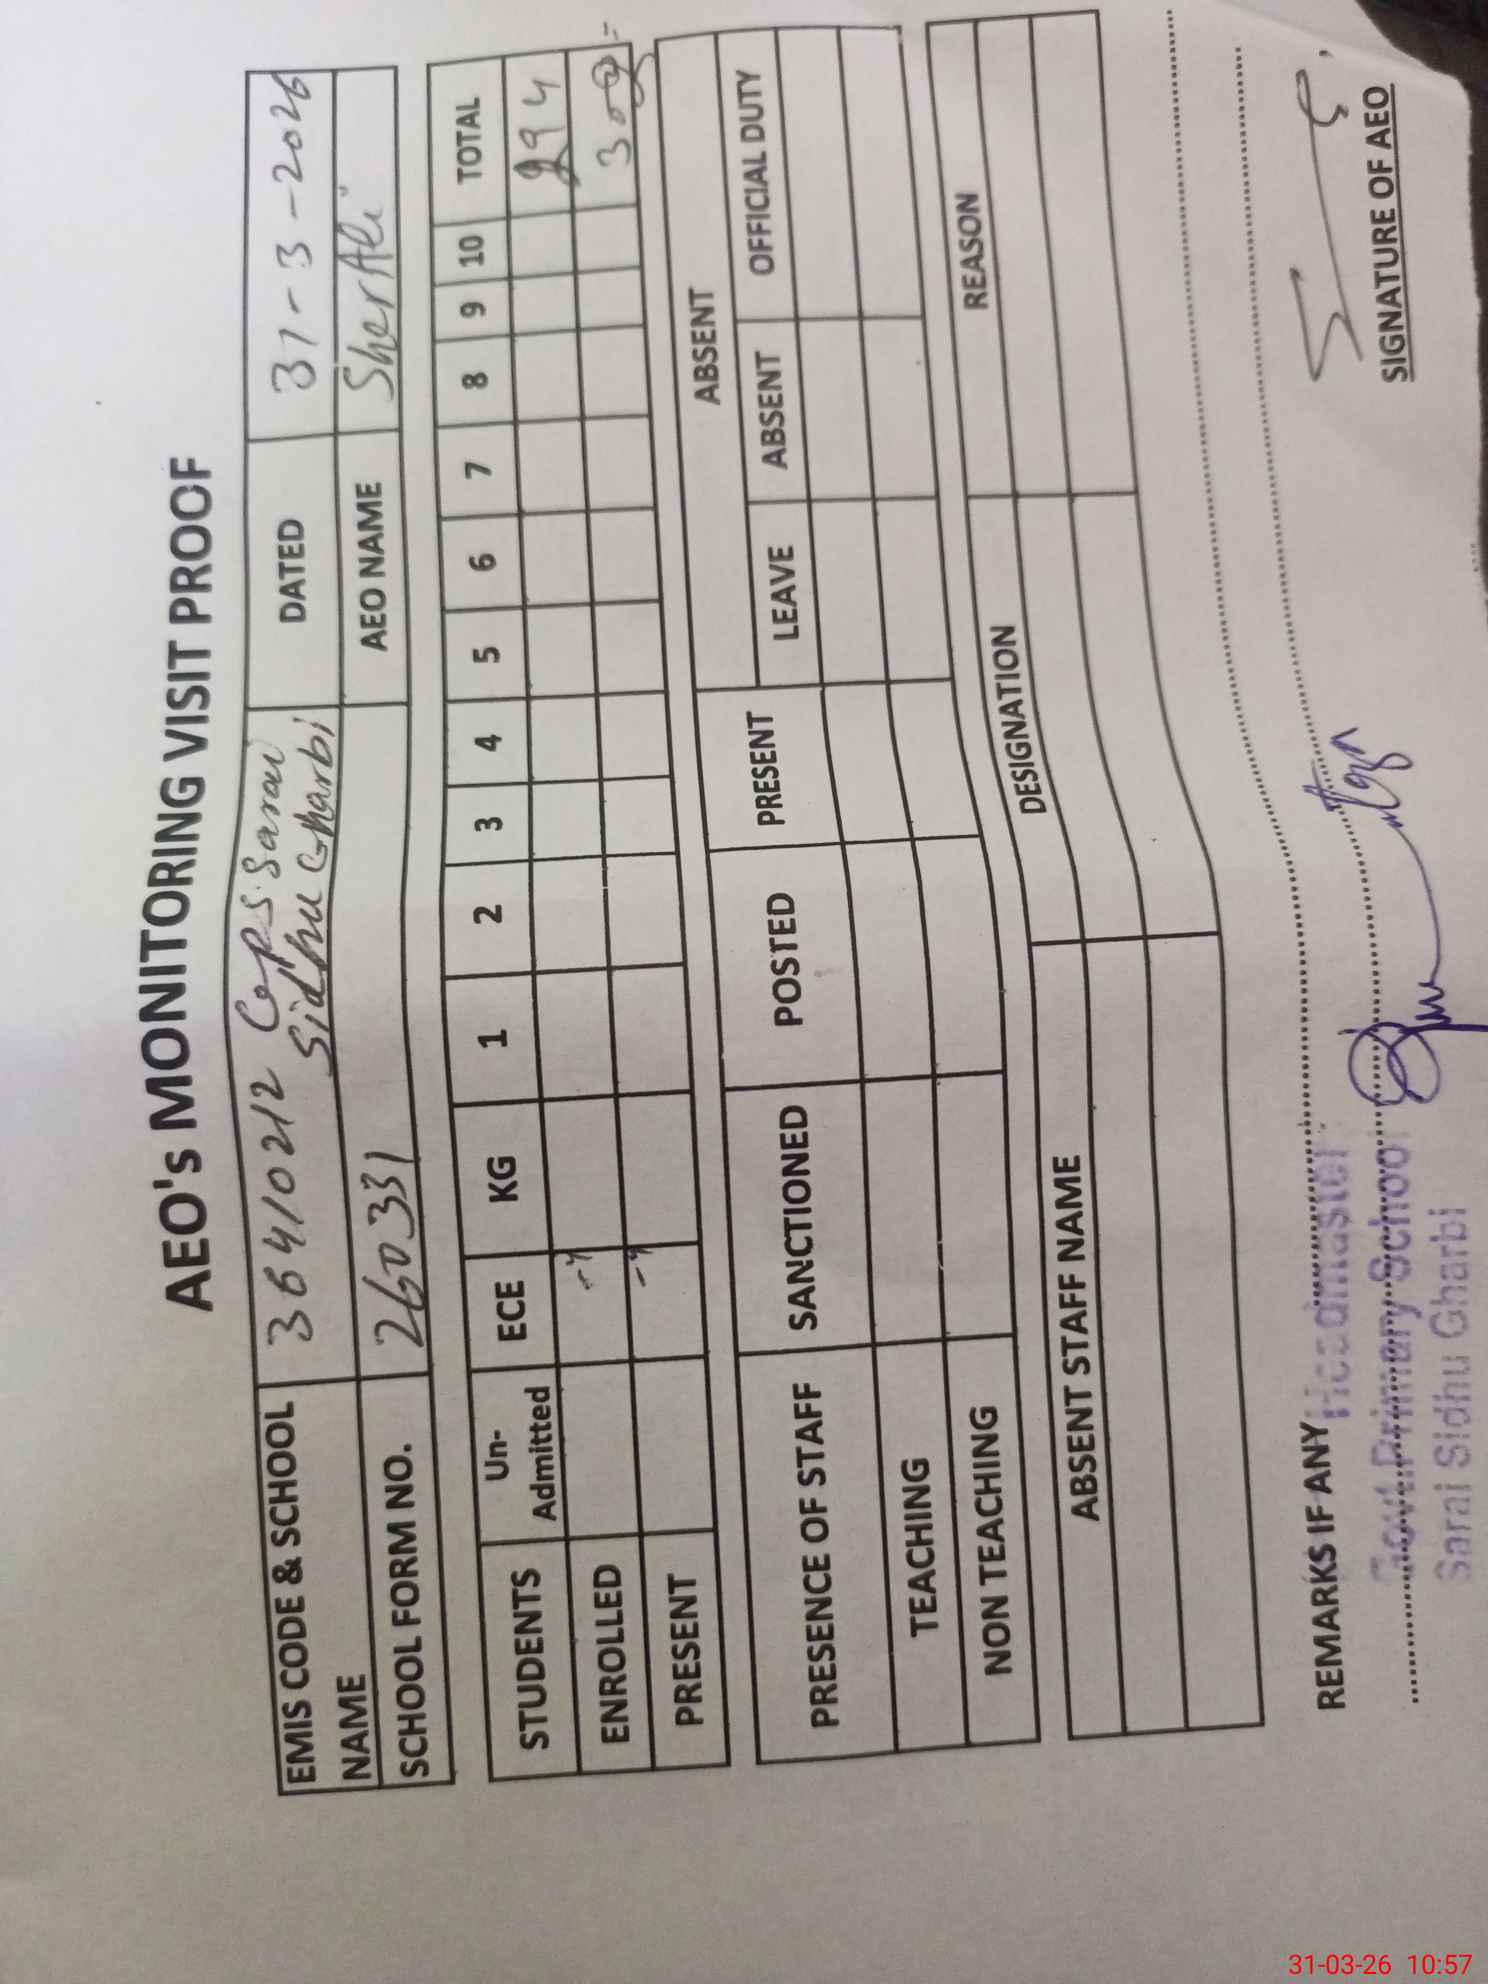 AEO's MONITORING VISIT PROOF
EMIS CODE & SCHOOL NAME 36410212 GPS Sarai Sidhu Gharbi DATED 31-3-2026
SCHOOL FORM NO. 260331 AEO NAME Sher Ali
STUDENTS Un-Admitted ECE KG 1 2 3 4 5 6 7 8 9 10 TOTAL
ENROLLED 294
PRESENT
PRESENCE OF STAFF SANCTIONED POSTED PRESENT ABSENT
LEAVE ABSENT OFFICIAL DUTY
TEACHING
NON TEACHING
ABSENT STAFF NAME DESIGNATION REASON
REMARKS IF ANY
Headmaster
Govt. Primary School
Sarai Sidhu Gharbi
SIGNATURE OF AEO
31-03-26 10:57